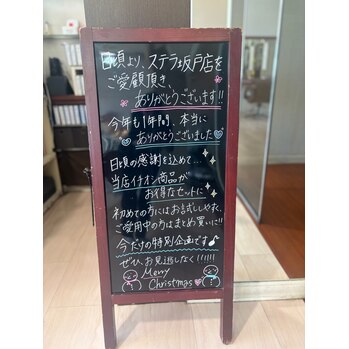 日頃より、ステラ坂戸店を
ご愛顧頂き、
ありがとうございます!!
今年も1年間、本当に
ありがとうございました
日頃の感謝を込めて…
当店イチオシ商品が
お得なセットに
初めての方にはお試ししやすく、
ご愛用中の方はまとめ買いに!!
今だけの特別企画です♪
ぜひ、お見逃しなく!!!!!!
Merry
Christmas